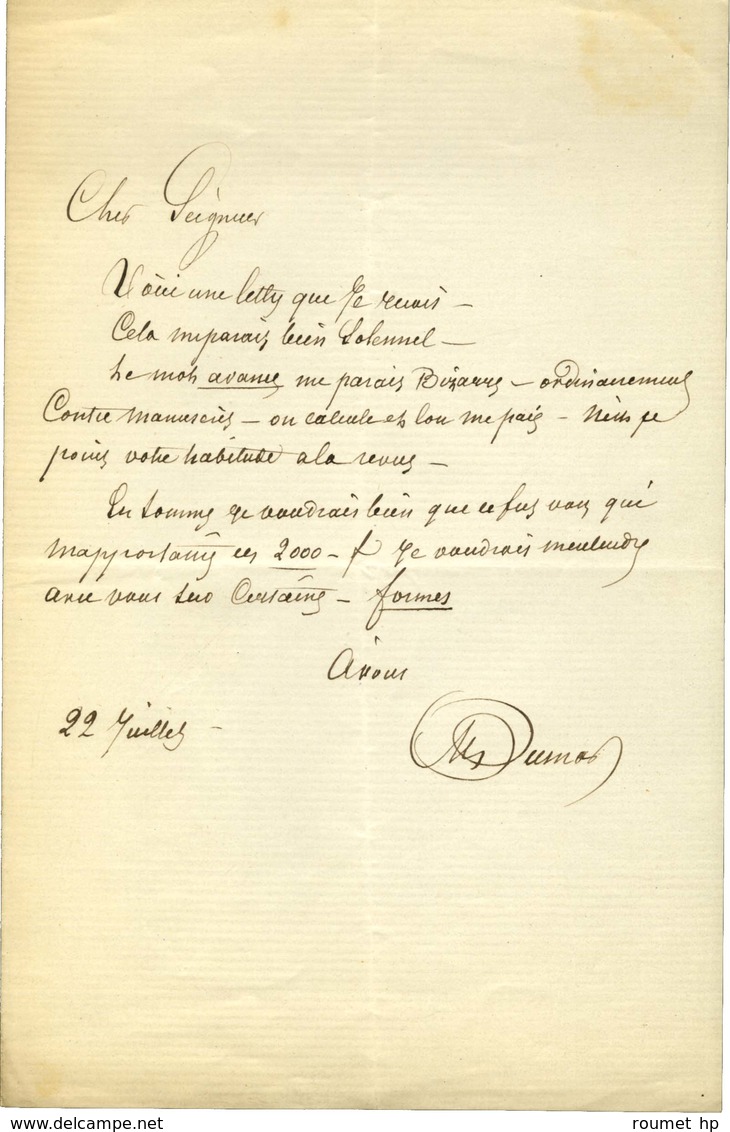 Cher Seigneur
Voici une lettre que je reçois —
Cela me parait bien solennel —
Le mot avance me parait Bizarre — ordinairement
Contre manuscrit — on calcule et l'on me paie — N'est ce
point votre habitude a la revue —
En somme je voudrais bien que ce fut vous qui
m'apportassiez ces 2000 — f je voudrais m'entendre
avec vous sur Certaines — formes
A vous
22 Juillet —
Alx Dumas
delcampe.net
roumet hp